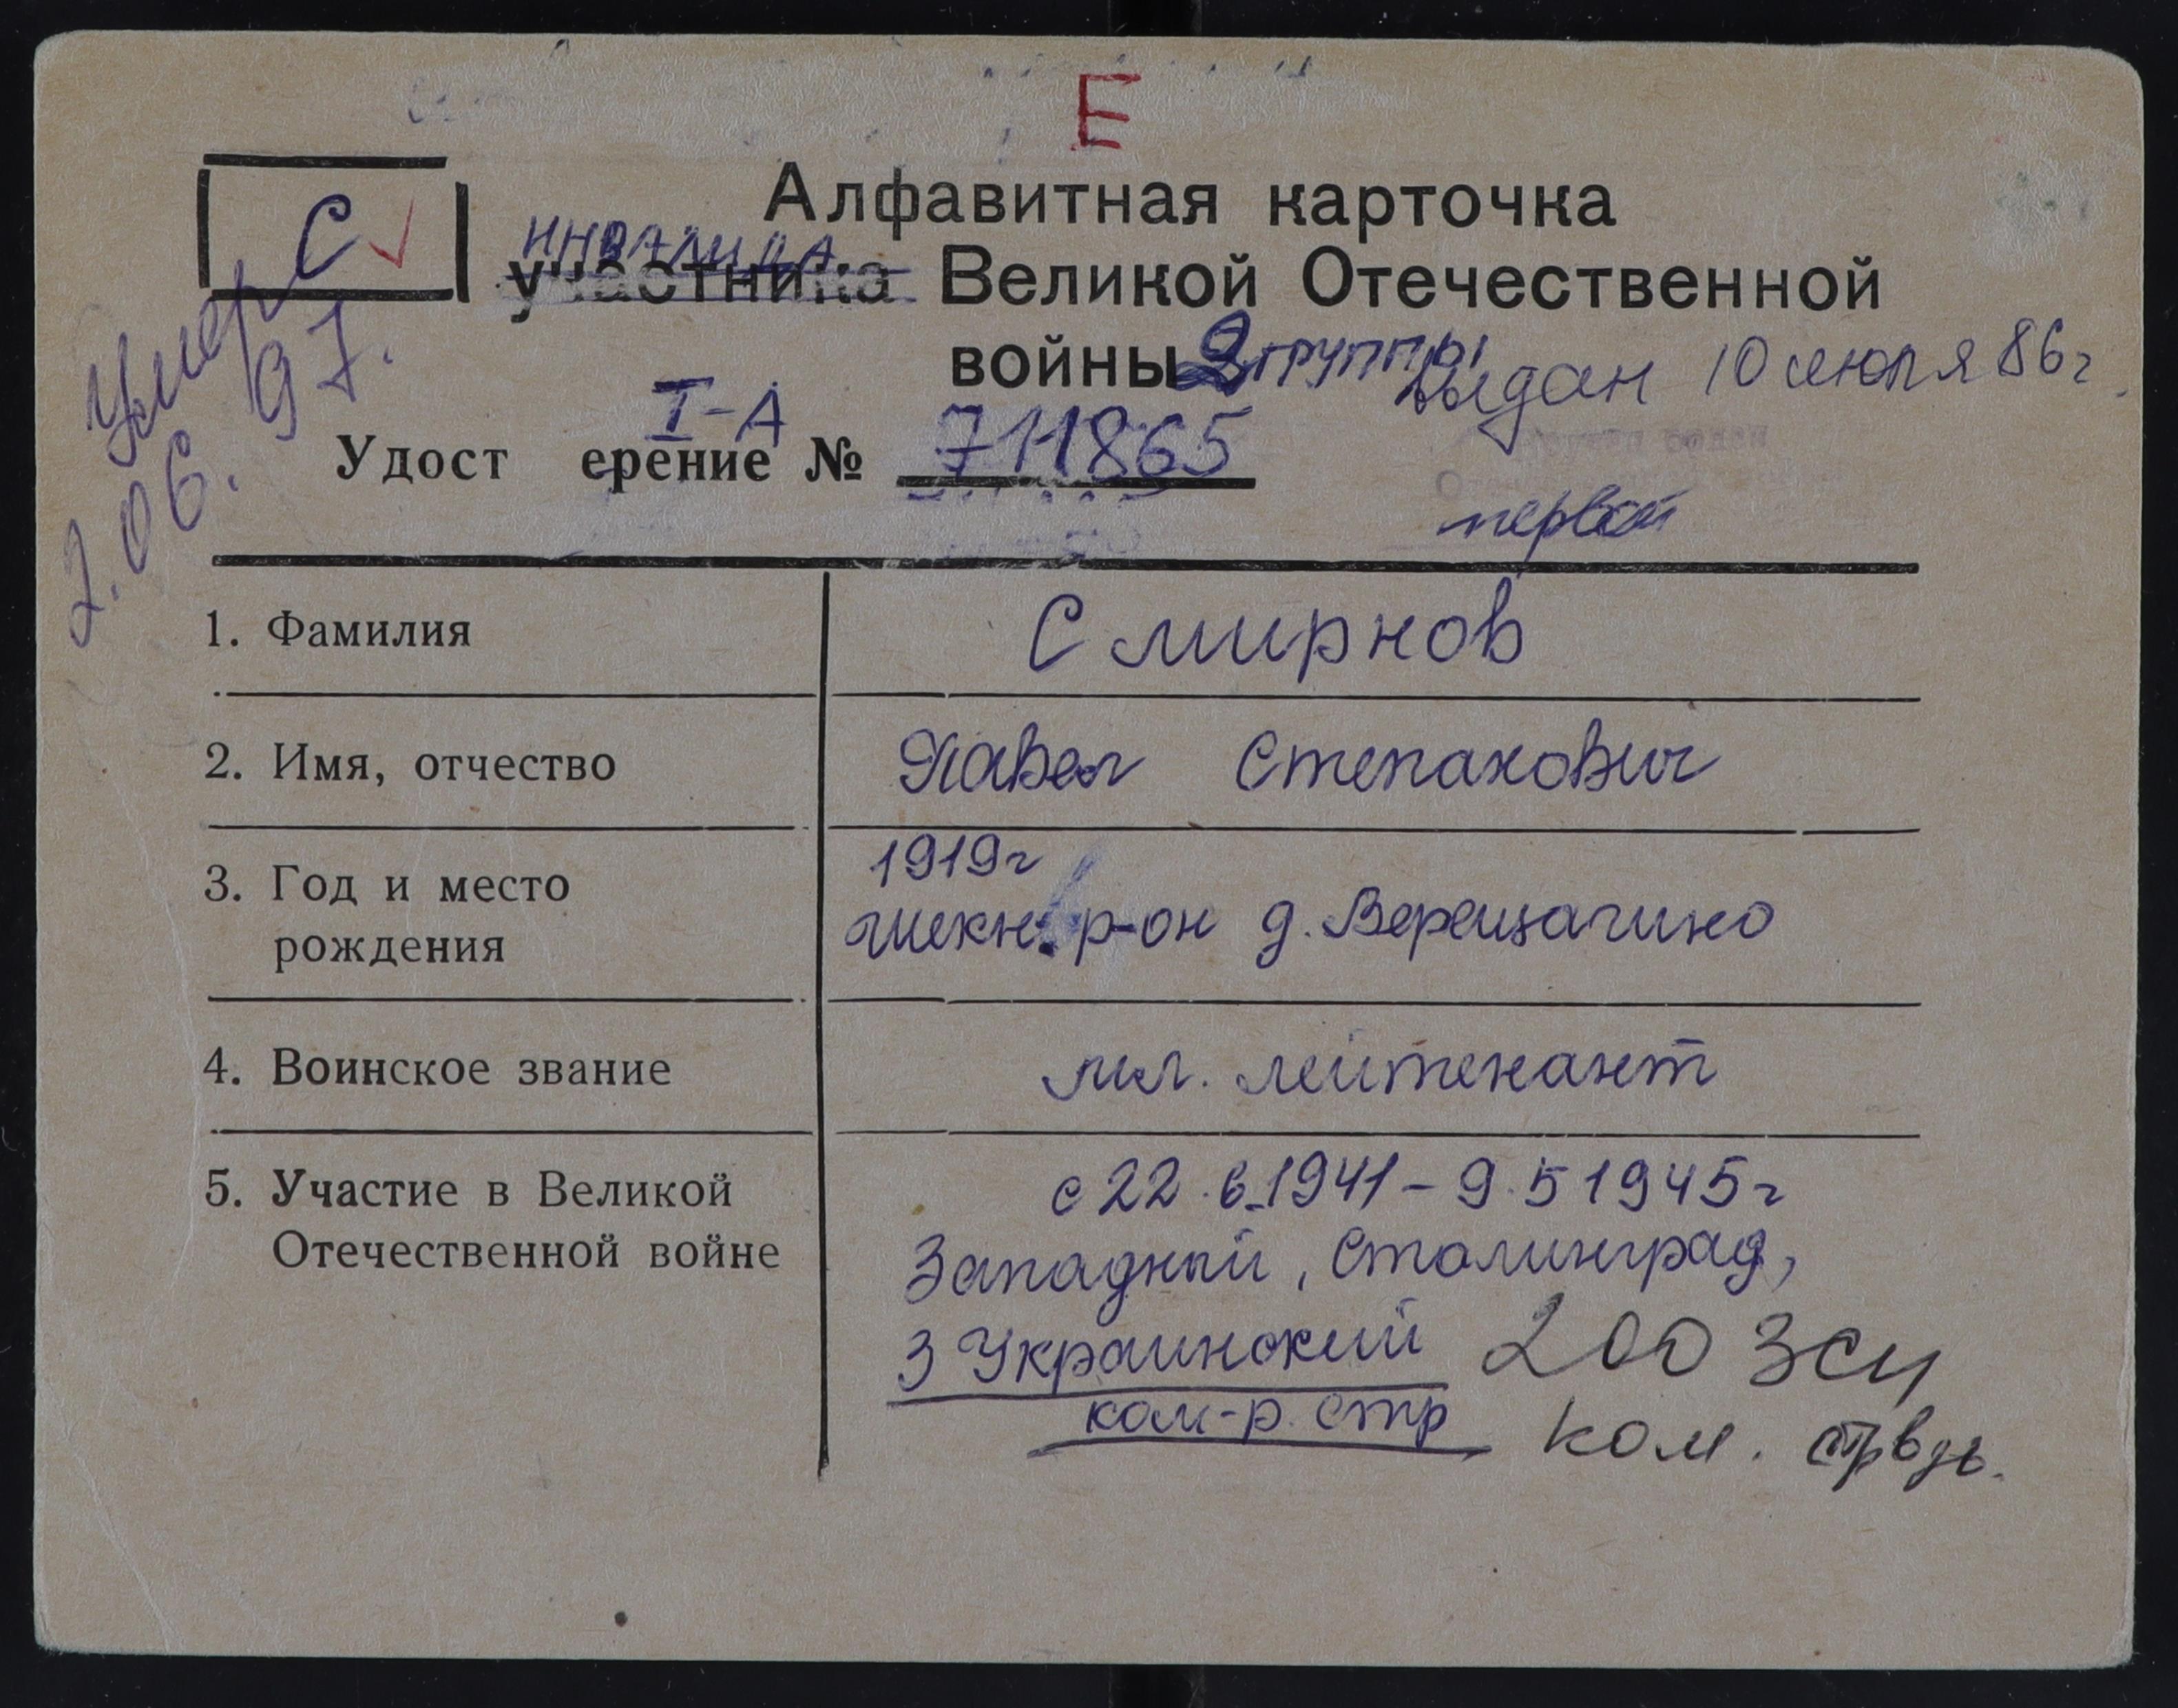 Е
Алфавитная карточка
С
инвалида
участника Великой Отечественной
войны 2 группы выдан 10 июля 86г.
Умер
2.06.97.
I-А
Удост ерение № 711865
первой
1. Фамилия Смирнов
2. Имя, отчество Павел Степанович
3. Год и место 1919г
рождения шекн. р-он д. Верещагино
4. Воинское звание мл. лейтенант
5. Участие в Великой с 22.6.1941 - 9.5 1945г
Отечественной войне Западный, Сталинград,
3 Украинский 200 зсп
ком-р. стр ком. стр взв.